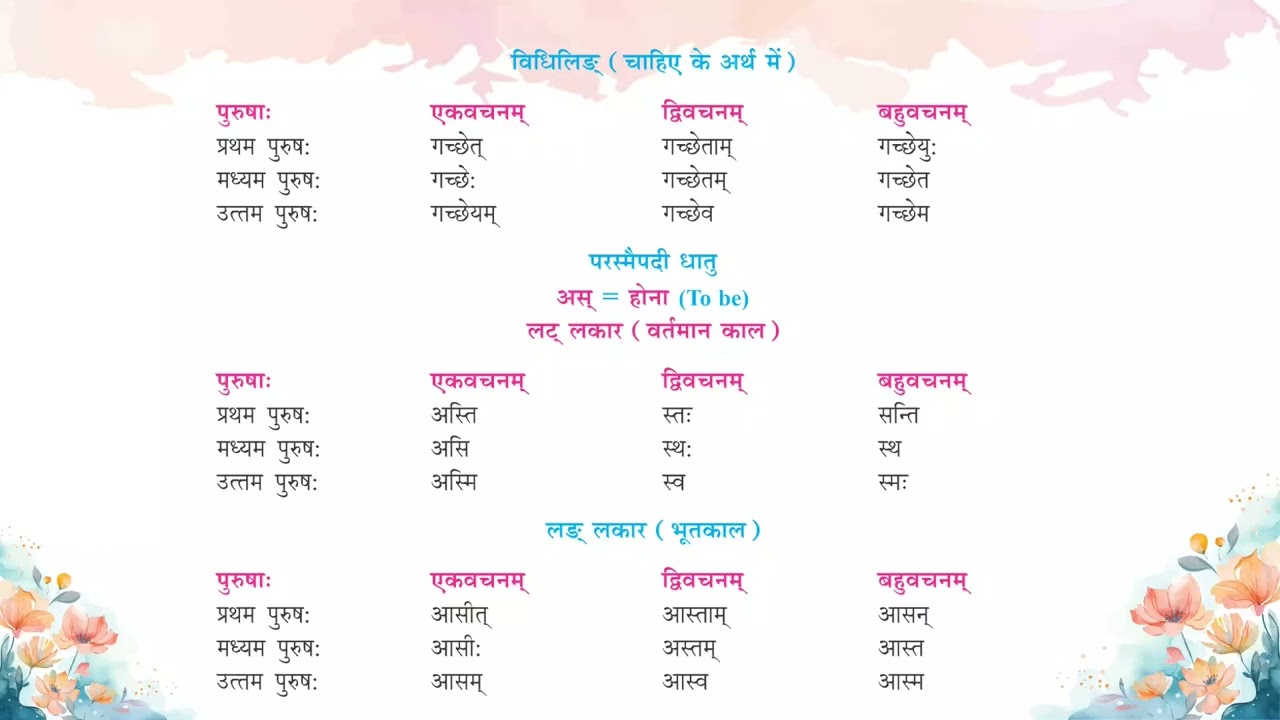 विधिलिङ् ( चाहिए के अर्थ में )
पुरुषाः एकवचनम् द्विवचनम् बहुवचनम्
प्रथम पुरुष: गच्छेत् गच्छेताम् गच्छेयु:
मध्यम पुरुष: गच्छे: गच्छेतम् गच्छेत
उत्तम पुरुष: गच्छेयम् गच्छेव गच्छेम
परस्मैपदी धातु
अस् = होना (To be)
लट् लकार ( वर्तमान काल )
पुरुषाः एकवचनम् द्विवचनम् बहुवचनम्
प्रथम पुरुष: अस्ति स्तः सन्ति
मध्यम पुरुष: असि स्थ: स्थ
उत्तम पुरुष: अस्मि स्व स्मः
लङ् लकार ( भूतकाल )
पुरुषाः एकवचनम् द्विवचनम् बहुवचनम्
प्रथम पुरुष: आसीत् आस्ताम् आसन्
मध्यम पुरुष: आसी: अस्तम् आस्त
उत्तम पुरुष: आसम् आस्व आस्म